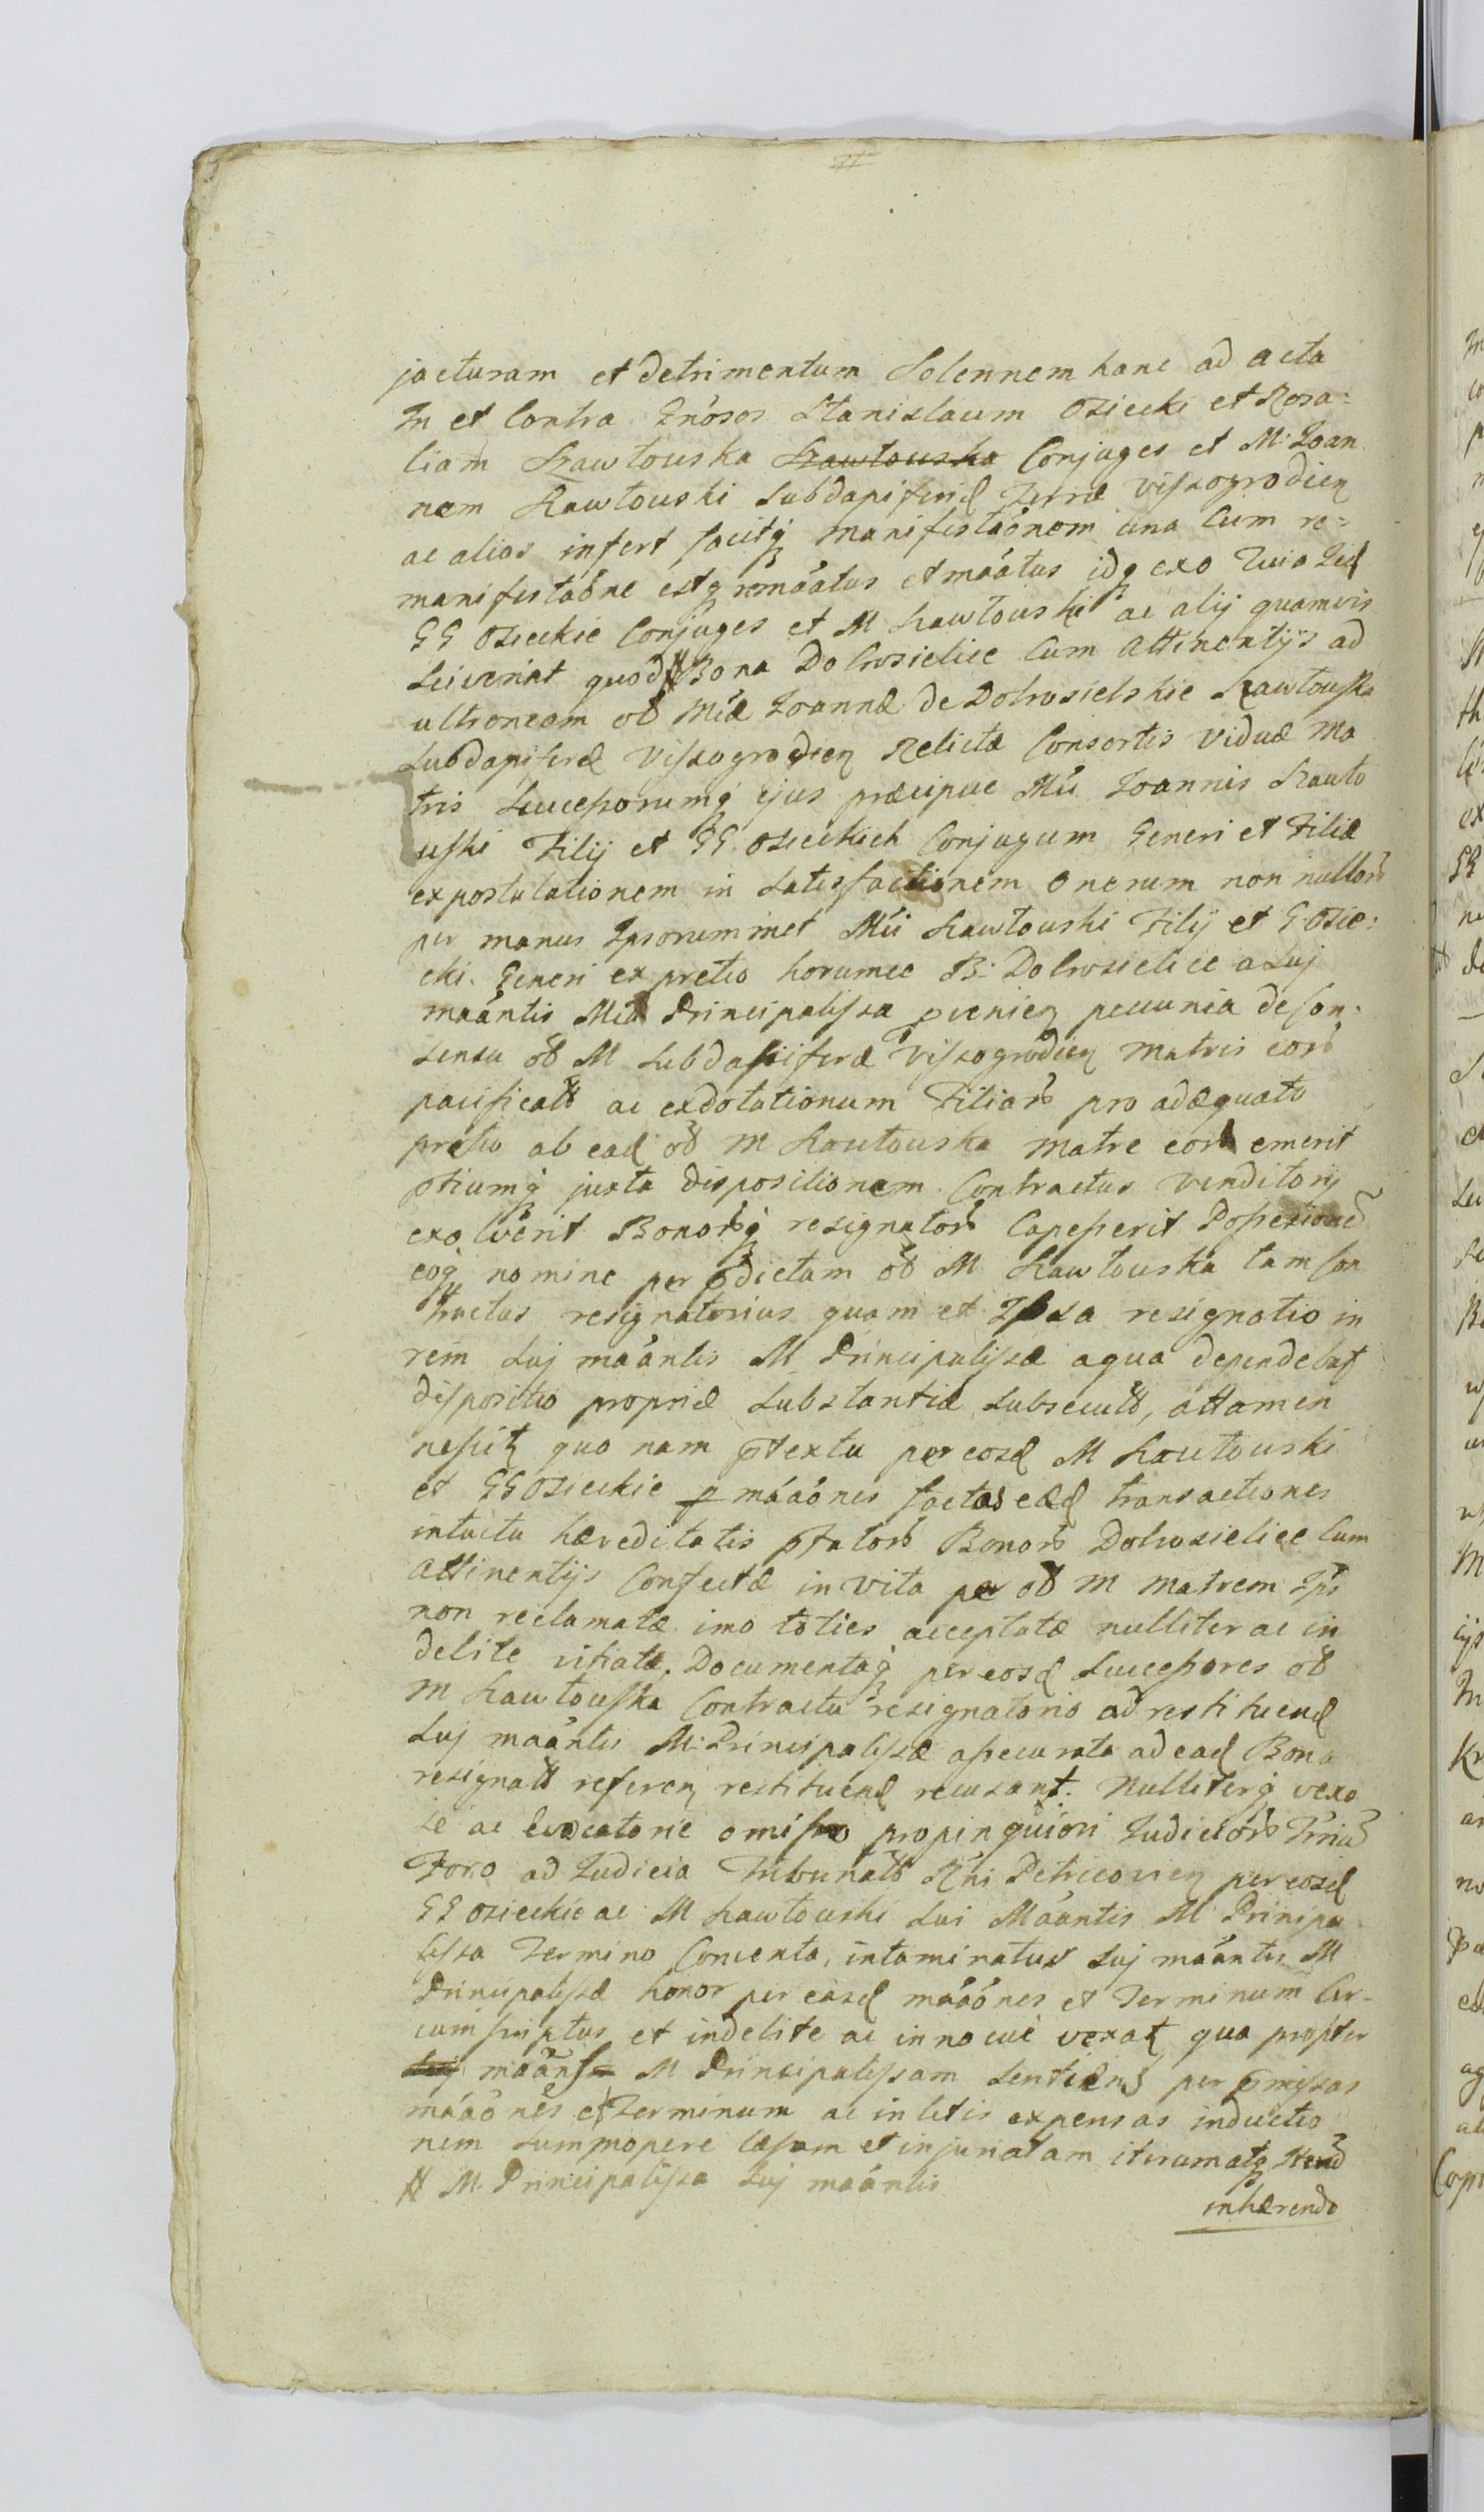 jacturam et detrimentum Solennem hanc ad acta
In et Contra Gnósos Stanislaum Osiecki et Rosa=
liam Kawłouska Kawłouska Conjuges et M: Joan
nem Kawłouski Subdapiferid Terræ Viszogrodien
ac alios infert facitq manifestaónem una Cum re=
manifestaóne estq remáatus et máatus idq exo Quia Iid
GG Osieckie Conjuges et M Kawłouski ac alij quamvis
Sciverint quod # Bona Dobrosielice Cum Attinentijs ad
ultroneam od Mcæ Joannæ de Dobrosielskie Kawłouska
Subdapiferæ Viszogrodien Relictæ Consortis Viduæ Ma
tris Successorumq ejus præcipue Mci Joannis Kawło
uski Filij et GG Osieckich Conjugum Generi et Filiæ
expostulationem in Satisfactionem Onerum non nullor
per manus Ipsorummet Mci Kawłouski Filij et G Osie:
cki Generi ex pretio horumce B: Dobrosielice a Suj
maántis Mca Principalissa pvenien pecunia de Con:
sensu od M Subdapiferæ Viszogrodien Matris eor
pacificat ac exdotationum Filiar pro adæquato
pretio ab ead od M Kawłouska Matre eor emerit
ptiumq juxta dispositionem Contractus Venditorij
exolverit Bonorq resignator Capesserit Possessione
eoq nomine per pdictam od M Kawłouska tam Con
tractus resignatorius quam et Ipsa resignatio in
rem Suj maántis M Principalissæ a qua dependebat
dispositio propriæ Substantiæ Subsecut, attamen
nescit quo nam ptextu per eosd M Kawłouski
et GG Osieckie p máaónes factas eæd transactiones
intuitu hæreditatis pfator Bonor Dobrosielice Cum
Attinentijs Confectæ in vita per od M Matrem Ips
non reclamatæ imo toties acceptatæ nulliter ac in
debite vitiatæ, Documentaq per eosd Successores od
M Kawłouska Contractu resignatorio ad restituend
Suj maántis M: Principalissæ assecurata ad ead Bona
resignat referen restituend recusant. Nulliterq vexo
se ac evocatorie omisso propinquiori Judicior Trium
Foro ad Judicia Tribunal Rni Petricovien per eosd
GG Osieckie ac M Kawłouski Sui Máantis M Principa
lissa Termino Conventa, intaminatus Suj maántis M
Principalissæ honor per easd máaónes et Terminum Cir-
cumscriptus et indebite ac innocue vexat qua propter
Suj maáns M Principalissam Sentiens per pmissas
máaónes et Terminum ac in litis expensas inductio
nem Summopere læsam et injuriatam iterumatq
# M. Principalissa Suj maántis
inhærendo